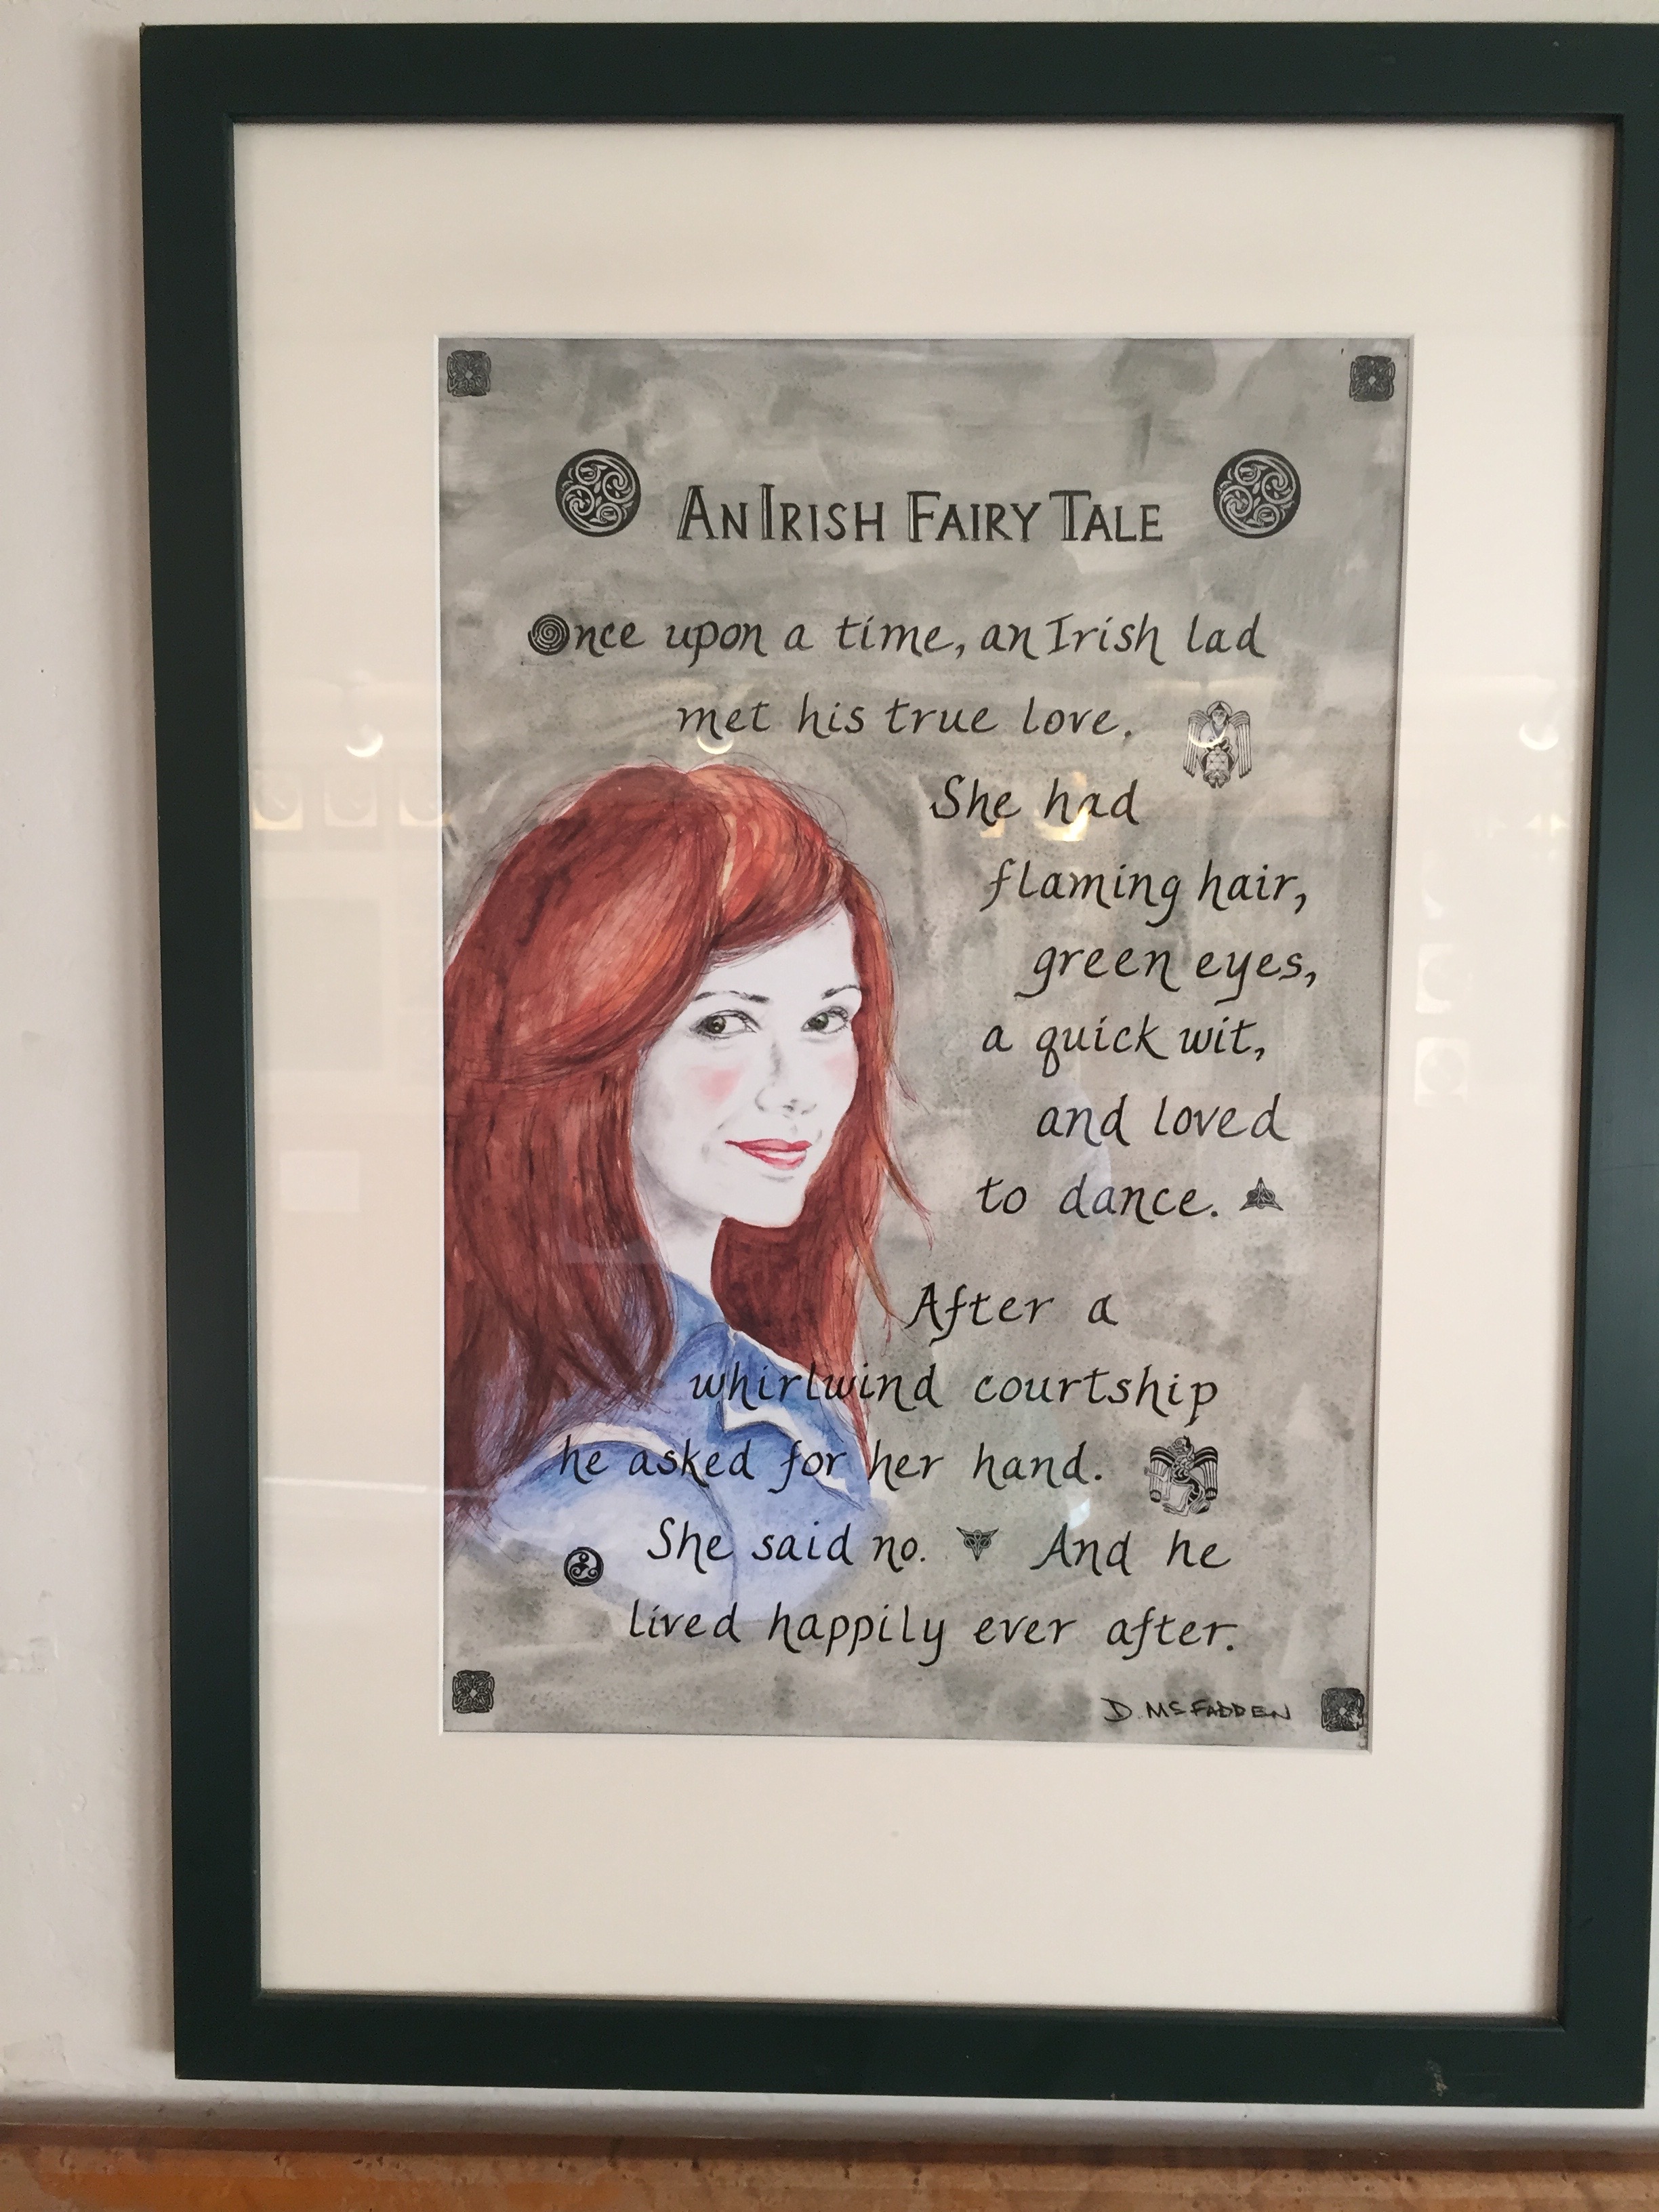 An Irish Fairy Tale
Once upon a time, an Irish lad
met his true love.
She had
flaming hair,
green eyes,
a quick wit,
and loved
to dance.
After a
whirlwind courtship
he asked for her hand.
She said no. And he
lived happily ever after.
D. McFadden